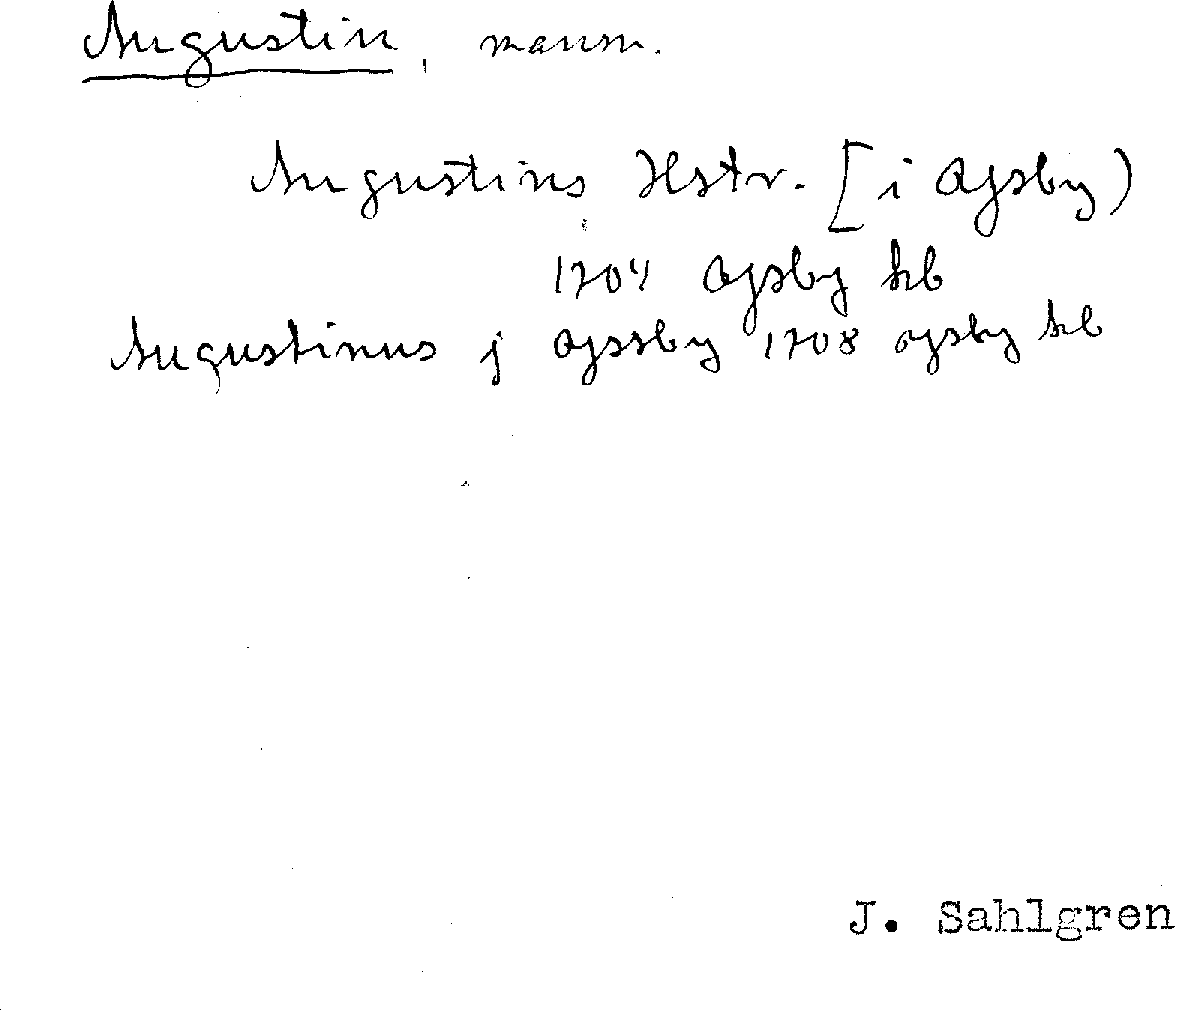 Augustin, mansn.
Augustins Hstr. [i Ajsby)
1704 Ajsby kb
Augustinus j Ajssby 1708 Ajsby kb
J. Sahlgren